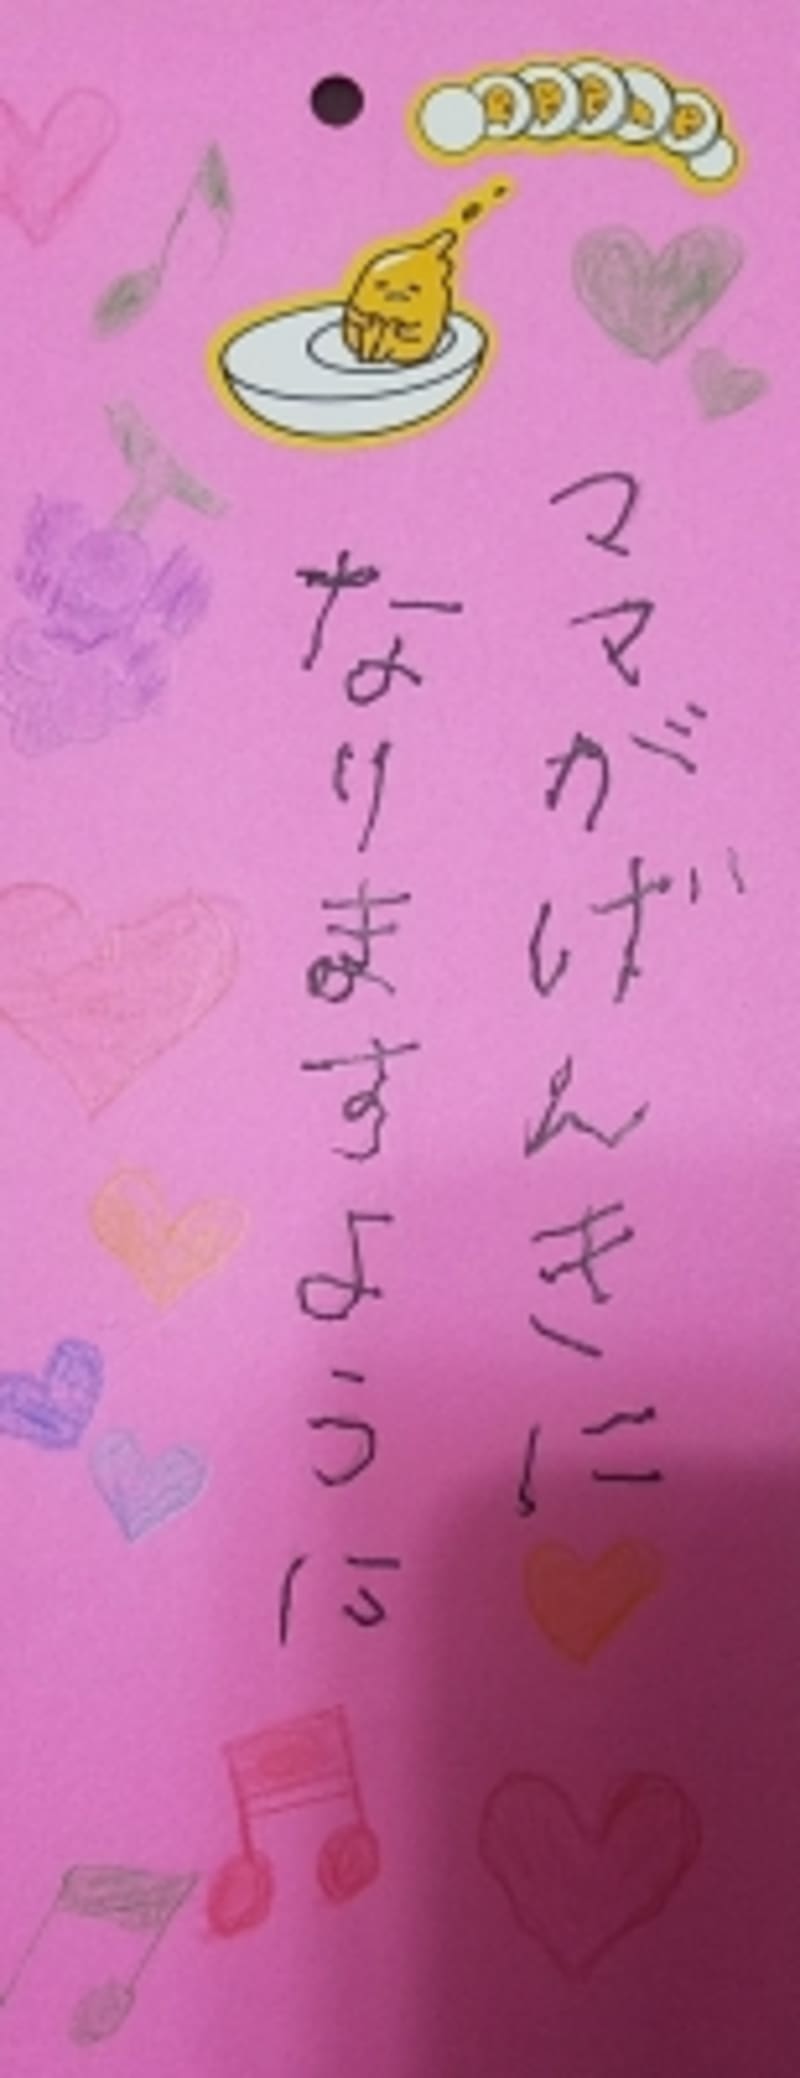 ママがげんきに
なりますように